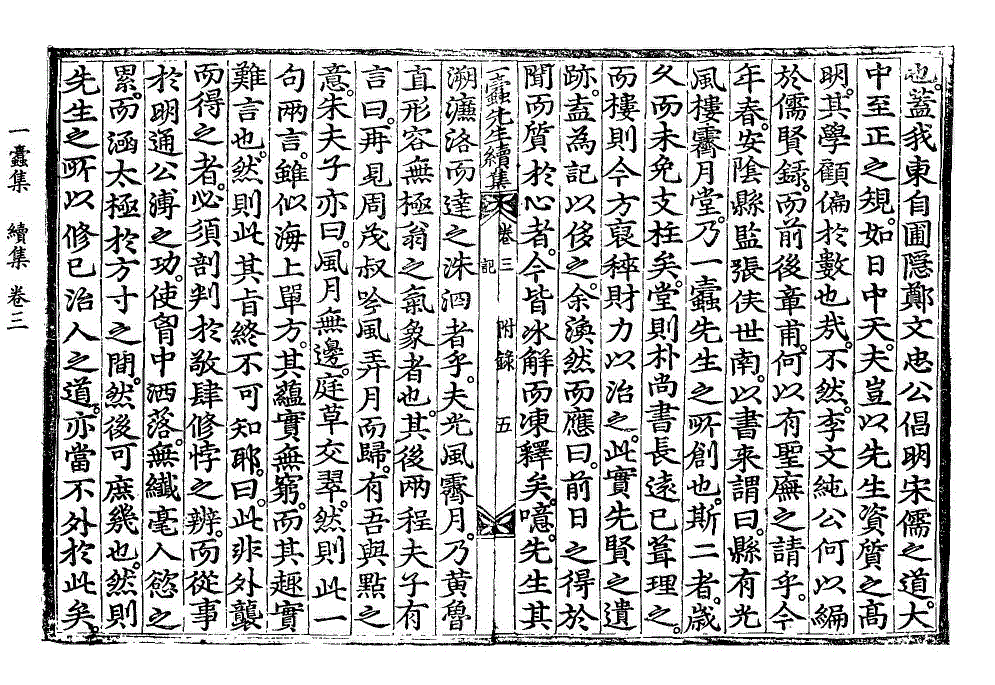 也。蓋我東自圃隱鄭文忠公倡明宋儒之道。大
中至正之規。如日中天。夫豈以先生資質之高
明。其學顧偏於數也哉。不然。李文純公何以編
於儒賢錄。而前後章甫。何以有聖廡之請乎。今
年春。安陰縣監張侯世南。以書来謂曰。縣有光
風樓霽月堂。乃一蠹先生之所創也。斯二者。歲
久而未免支柱矣。堂則朴尚書長遠已葺理之。
而樓則今方裒稡財力以治之。此實先賢之遺
跡。盍為記以侈之。余渙然而應曰。前日之得於
聞而質於心者。今皆冰解而凍釋矣。噫。先生其
一蠹先生續集 卷三 記 附錄 五
溯濂洛而達之洙泗者乎。夫光風霽月。乃黄魯
直形容無極翁之氣象者也。其後兩程夫子有
言曰。再見周茂叔吟風弄月而歸。有吾與點之
意。朱夫子亦曰。風月無邊。庭草交翠。然則此一
句兩言。雖似海上單方。其蘊實無窮。而其趣實
難言也。然則此其旨終不可知耶。曰。此非外襲
而得之者。必須剖判於敬肆修悖之辨。而從事
於明通公溥之功。使胷中洒落。無纖毫人慾之
累。而涵太極於方寸之間。然後可庶幾也。然則
先生之所以修己治人之道。亦當不外於此矣。
一蠹集 續集 卷三